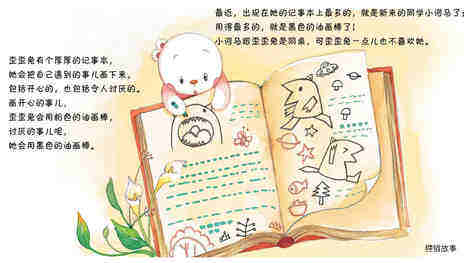 歪歪兔有个厚厚的记事本，
她会把自己遇到的事儿画下来，
包括开心的，也包括令人讨厌的。
画开心的事儿，
歪歪兔会用粉色的油画棒，
讨厌的事儿呢，
她会用黑色的油画棒。
最近，出现在她的记事本上最多的，就是新来的同学小河马了
用得最多的，就是黑色的油画棒了！
小河马跟歪歪兔是同桌，可歪歪兔一点儿也不喜欢她。
狸猫故事